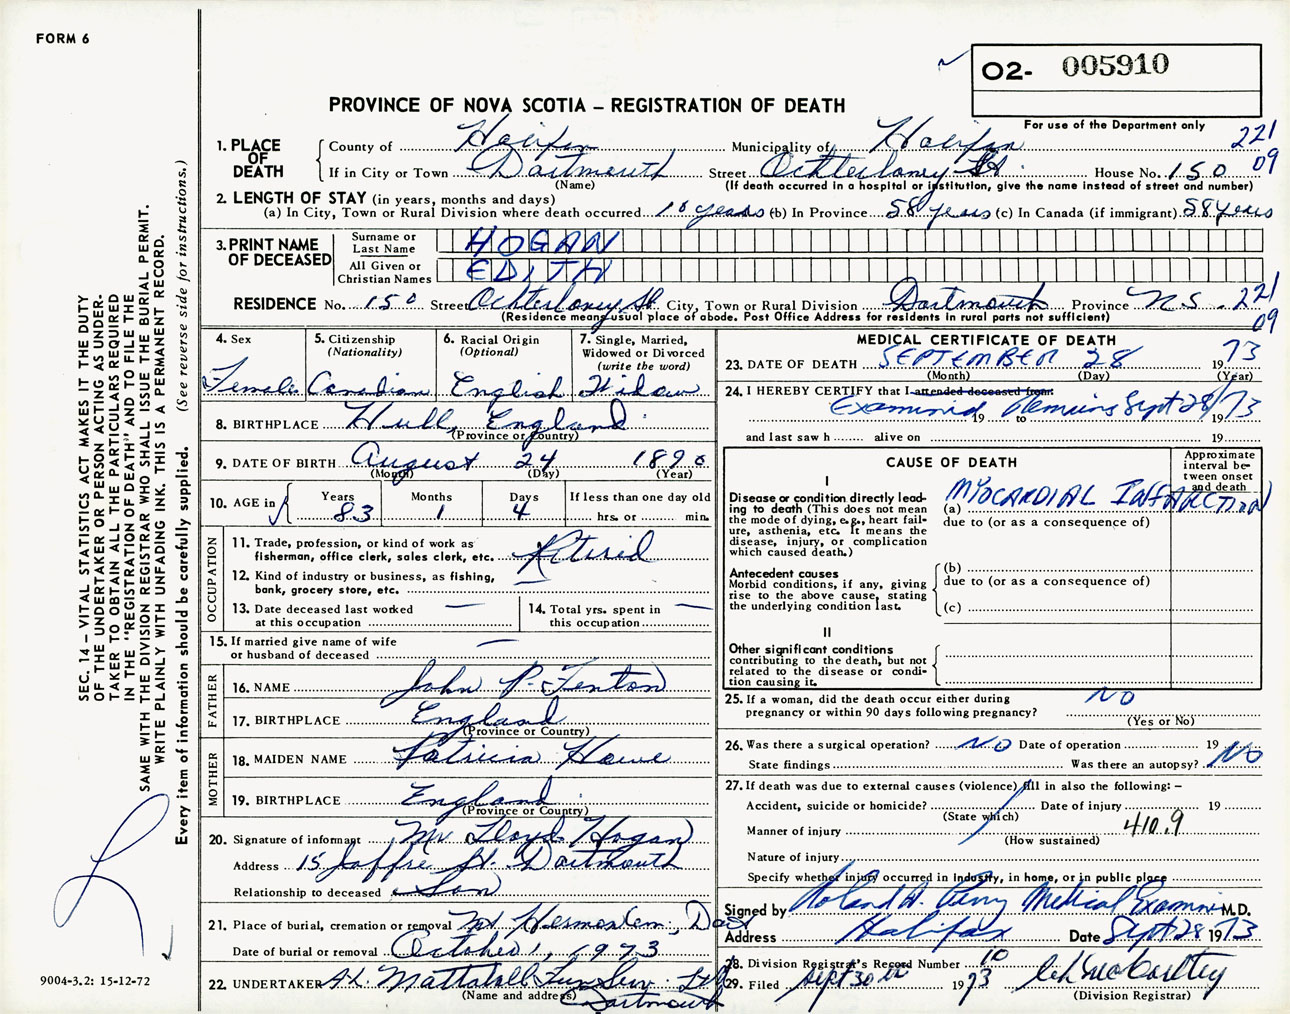 FORM 6
O2- 005910
PROVINCE OF NOVA SCOTIA – REGISTRATION OF DEATH
For use of the Department only
221
09
1. PLACE OF DEATH
County of Halifax Municipality of Halifax
If in City or Town Dartmouth Street Ochterloney St House No. 150
(Name) (If death occurred in a hospital or institution, give the name instead of street and number)
2. LENGTH OF STAY (in years, months and days)
(a) In City, Town or Rural Division where death occurred 10 years (b) In Province 58 years (c) In Canada (if immigrant) 58 years
3. PRINT NAME OF DECEASED
Surname or Last Name HOGAN
All Given or Christian Names EDITH
RESIDENCE No. 150 Street Ochterloney St. City, Town or Rural Division Dartmouth Province N.S.
221
09
(Residence means usual place of abode. Post Office Address for residents in rural parts not sufficient)
4. Sex
Female
5. Citizenship
(Nationality)
Canadian
6. Racial Origin
(Optional)
English
7. Single, Married,
Widowed or Divorced
(write the word)
Widow
8. BIRTHPLACE Hull, England
(Province or Country)
9. DATE OF BIRTH August 24 1890
(Month) (Day) (Year)
10. AGE in
Years 83
Months 1
Days 4
If less than one day old
hrs. or min.
OCCUPATION
11. Trade, profession, or kind of work as
fisherman, office clerk, sales clerk, etc. Retired
12. Kind of industry or business, as fishing,
bank, grocery store, etc. —
13. Date deceased last worked
at this occupation —
14. Total yrs. spent in
this occupation —
15. If married give name of wife
or husband of deceased —
FATHER
16. NAME John P. Fenton
17. BIRTHPLACE England
(Province or Country)
MOTHER
18. MAIDEN NAME Patricia Howe
19. BIRTHPLACE England
(Province or Country)
20. Signature of informant Mr Lloyd Hogan
Address 15 Joffre St. Dartmouth
Relationship to deceased Son
21. Place of burial, cremation or removal Mt Hermon Cem; Dart
Date of burial or removal October 1, 1973
22. UNDERTAKER A.L. Mattatall Fun Serv. Ltd
Dartmouth
(Name and address)
MEDICAL CERTIFICATE OF DEATH
23. DATE OF DEATH SEPTEMBER 28 1973
(Month) (Day) (Year)
24. I HEREBY CERTIFY that I attended deceased from:
Examined 19 to Remains Sept 28/73
and last saw h alive on 19
CAUSE OF DEATH
Approximate
interval be-
tween onset
and death
I
Disease or condition directly lead-
ing to death (This does not mean
the mode of dying, e.g., heart fail-
ure, asthenia, etc. It means the
disease, injury, or complication
which caused death.)
(a) MYOCARDIAL INFARCTION
due to (or as a consequence of)
Antecedent causes
Morbid conditions, if any, giving
rise to the above cause, stating
the underlying condition last.
(b)
due to (or as a consequence of)
(c)
II
Other significant conditions
contributing to the death, but not
related to the disease or condi-
tion causing it.
25. If a woman, did the death occur either during
pregnancy or within 90 days following pregnancy? NO
(Yes or No)
26. Was there a surgical operation? NO Date of operation 19
State findings Was there an autopsy? NO
27. If death was due to external causes (violence) fill in also the following: –
Accident, suicide or homicide? Date of injury 19
(State which)
Manner of injury 410.9
(How sustained)
Nature of injury
Specify whether injury occurred in Industry, in home, or in public place
Signed by Roland A. Perry Medical Examiner M.D.
Address Halifax Date Sept 28 1973
28. Division Registrar's Record Number 10
29. Filed Sept 30th 1973
(Division Registrar)
SEC. 14 – VITAL STATISTICS ACT MAKES IT THE DUTY
OF THE UNDERTAKER OR PERSON ACTING AS UNDER-
TAKER TO OBTAIN ALL THE PARTICULARS REQUIRED
IN THE "REGISTRATION OF DEATH" AND TO FILE THE
SAME WITH THE DIVISION REGISTRAR WHO SHALL ISSUE THE BURIAL PERMIT.
WRITE PLAINLY WITH UNFADING INK. THIS IS A PERMANENT RECORD.
Every item of information should be carefully supplied. (See reverse side for instructions.)
9004-3.2: 15-12-72